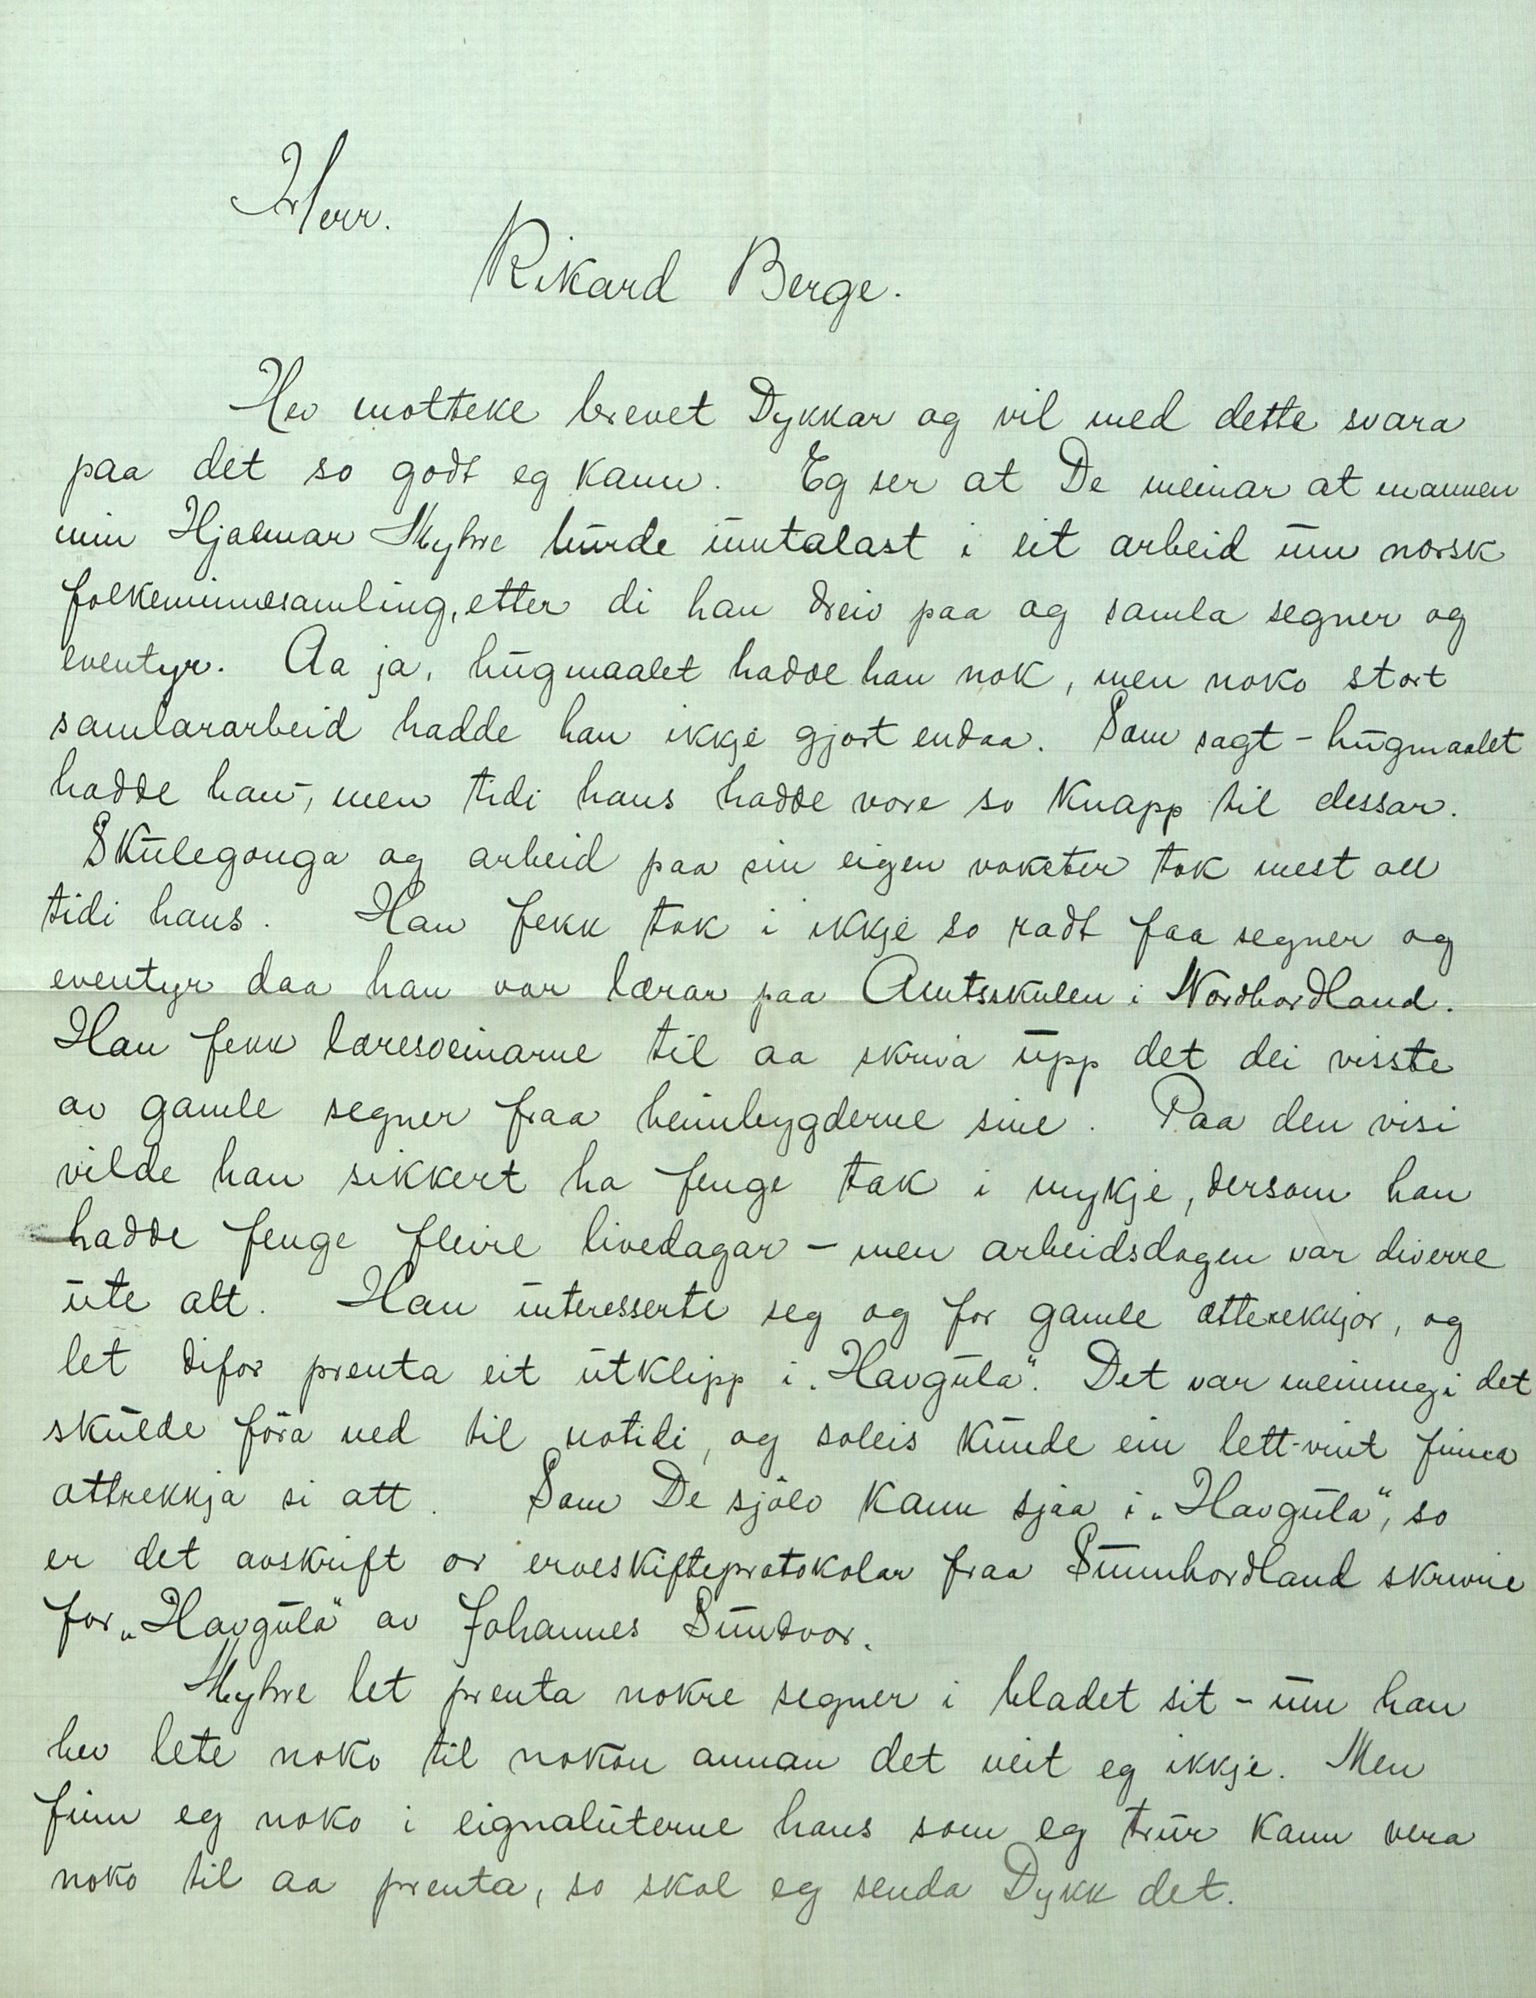 Herr.
Rikard Berge.
Hev motteke brevet Dykkar og vil med dette svara
paa det so godt eg kann. Eg ser at De meinar at mannen
min Hjalmar Myhre burde umtalast i eit arbeid um norsk
folkeminnesamling, etter di han dreiv paa og samla segner og
eventyr. Aa ja, hugmaalet hadde han nok, men noko stort
samlararbeid hadde han ikkje gjort endaa. Som sagt - hugmaalet
hadde han -, men tidi hans hadde vore so knapp til dessar.
Skulegonga og arbeid paa sin eigen vokster tok mest all
tidi hans. Han fekk tak i ikkje so radt faa segner og
eventyr daa han var lærar paa Amtsskulen i Nordhordland.
Han fekk læresveinarne til aa skriva upp det dei visste
av gamle segner fraa heimbygderne sine. Paa den visi
vilde han sikkert ha fenge tak i mykje, dersom han
hadde fenge fleire livedagar - men arbeidsdagen var diverre
ute alt. Han interesserte seg og for gamle ætterekkjor, og
let difor prenta eit utklipp i „Havgula“. Det var meiningi det
skulde föra ned til notidi, og soleis kunde ein lett-vint finna
ættrekkja si att. Som De sjölv kann sjaa i „Havgula“, so
er det avskrift or erveskifteprotokolar fraa Sunnhordland skrivne
for „Havgula“ av Johannes Sundvor.
Myhre let prenta nokre segner i bladet sit - um han
hev lete noko til nokon annan det veit eg ikkje. Men
finn eg noko i eignaluterne hans som eg trur kann vera
noko til aa prenta, so skal eg senda Dykk det.